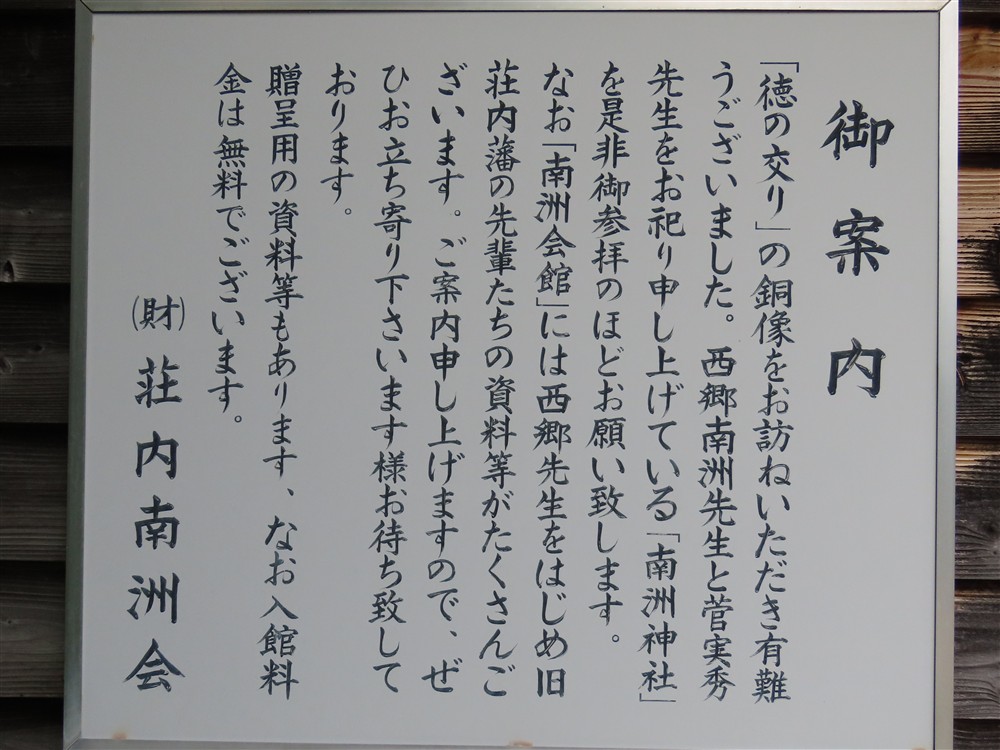 御案内
「徳の交り」の銅像をお訪ねいただき有難
うございました。西郷南洲先生と菅実秀
先生をお祀り申し上げている「南洲神社」
を是非御参拝のほどお願い致します。
なお「南洲会館」には西郷先生をはじめ旧
荘内藩の先輩たちの資料等がたくさんご
ざいます。ご案内申し上げますので、ぜ
ひお立ち寄り下さいます様お待ち致して
おります。
贈呈用の資料等もあります、なお入館料
金は無料でございます。
(財)荘内南洲会